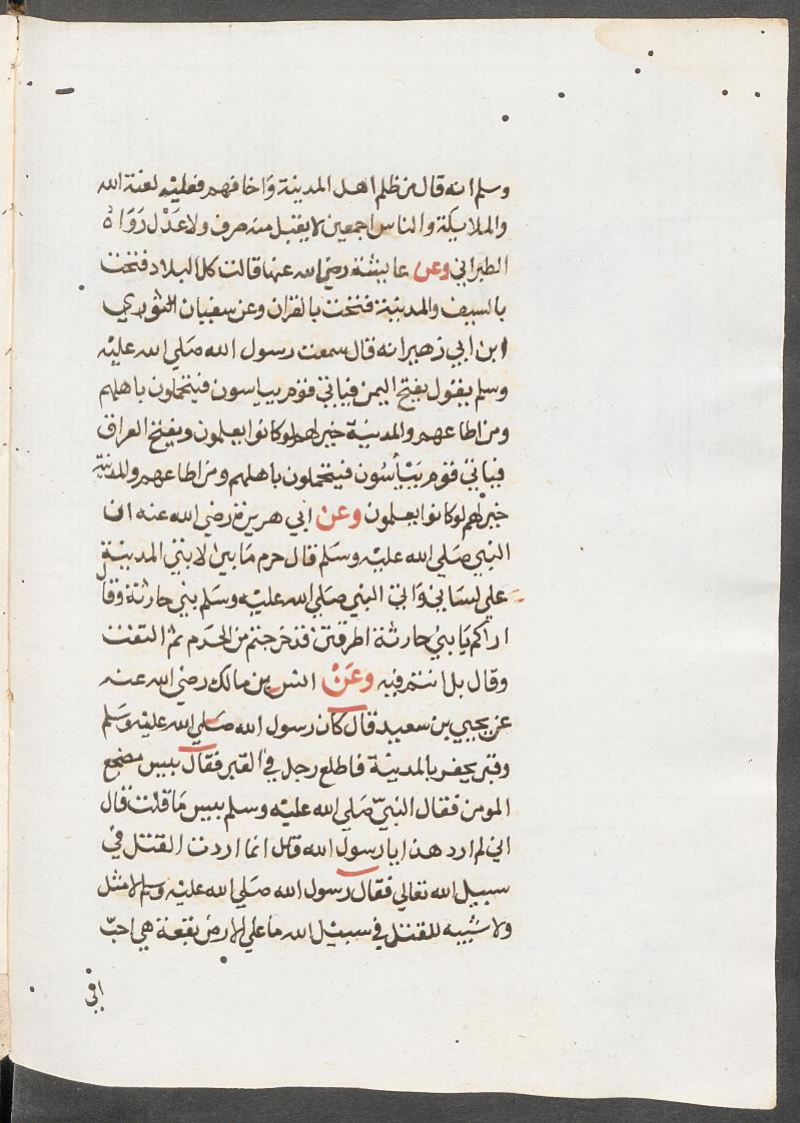 وسلم انه قال من ظلم اهل المدينة واخافهم فعليه لعنة الله
والملايكة والناس اجمعين لا يقبل منه صرف ولا عَدْل رَوَاهُ
الطبراني وعن عايشة رضي الله عنها قالت كل البلاد فتحت
بالسيف والمدينة فتحت بالقران وعن سفيان الثوري
ابن ابي زهير انه قال سمعت رسول الله صَلي الله عليْه
وسلم يقول يفتح اليمن فياتي قوم يبياسون فيتحملون باهلهم
ومن اطاعهم والمدينة خير لهم لو كانوا يعلمون ويفتح العراق
فياتي قوم يَبْيأسُون فيتحملون باهلهم ومن اطاعهم والمدينة
خير لهم لو كانوا يعلمون وعن ابي هريرة رضي الله عنه ان
النبي صَلي الله عليْه وسَلم قال حرم مَا بين لابتي المدينة
علي لسَاني وَاتي النبي صَلي الله عليْه وسَلم بني حارثة وقال
اراكم يَا بني حارثة اطرقتي قد خرجتم من الحَرَم ثم التفت
وقال بل انتم فيه وعَنْ انس بن مالك رضي الله عنه
عن يحيي بن سعيد قال كان رسول الله صَلي الله عليْه وسَلم
وقبر يحفر بالمدينة فاطلع رجل في القبر فقال بيس مضجع
المومن فقال النبيّ صَلي الله عليْه وسلم بيس مَا قلت قال
اني لم ارد هذا يا رسول الله قال انما اردت القتل في
سبيل الله تعالي فقال رسول الله صَلي الله عليْه وسلم لا مثل
ولا شبيه للقتل في سبيْل الله ما علي الارض بقعة هي احبّ
اتي